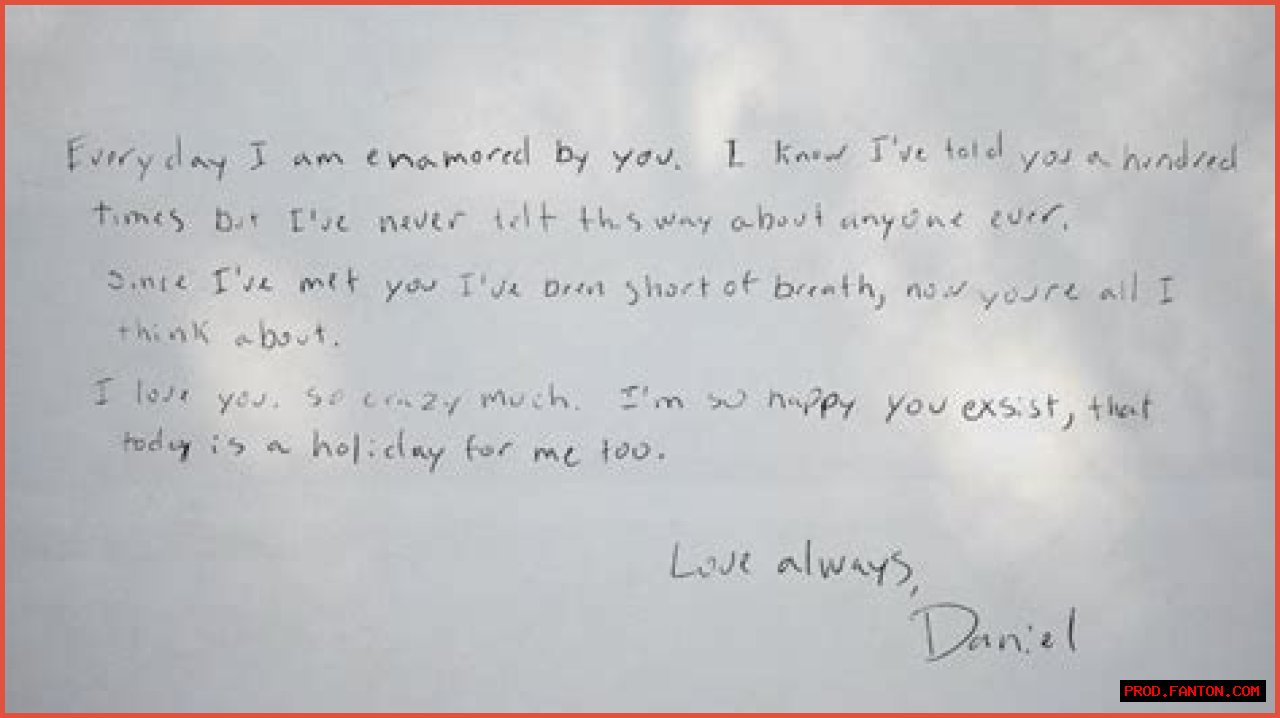 Everyday I am enamored by you. I know I've told you a hundred
times but I've never felt this way about anyone ever.
Since I've met you I've been short of breath, now youre all I
think about.
I love you. so crazy much. I'm so happy you exsist, that
today is a holiday for me too.
Love always,
Daniel
PROD.FANTON.COM